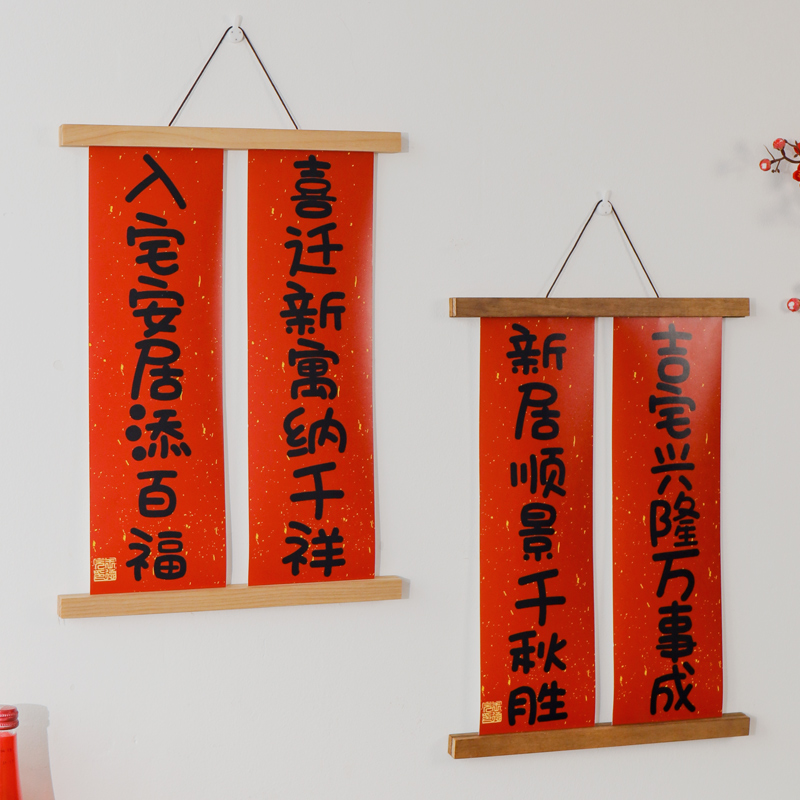 喜迁新寓纳千祥
入宅安居添百福
吉宅兴隆万事成
新居顺景千秋胜